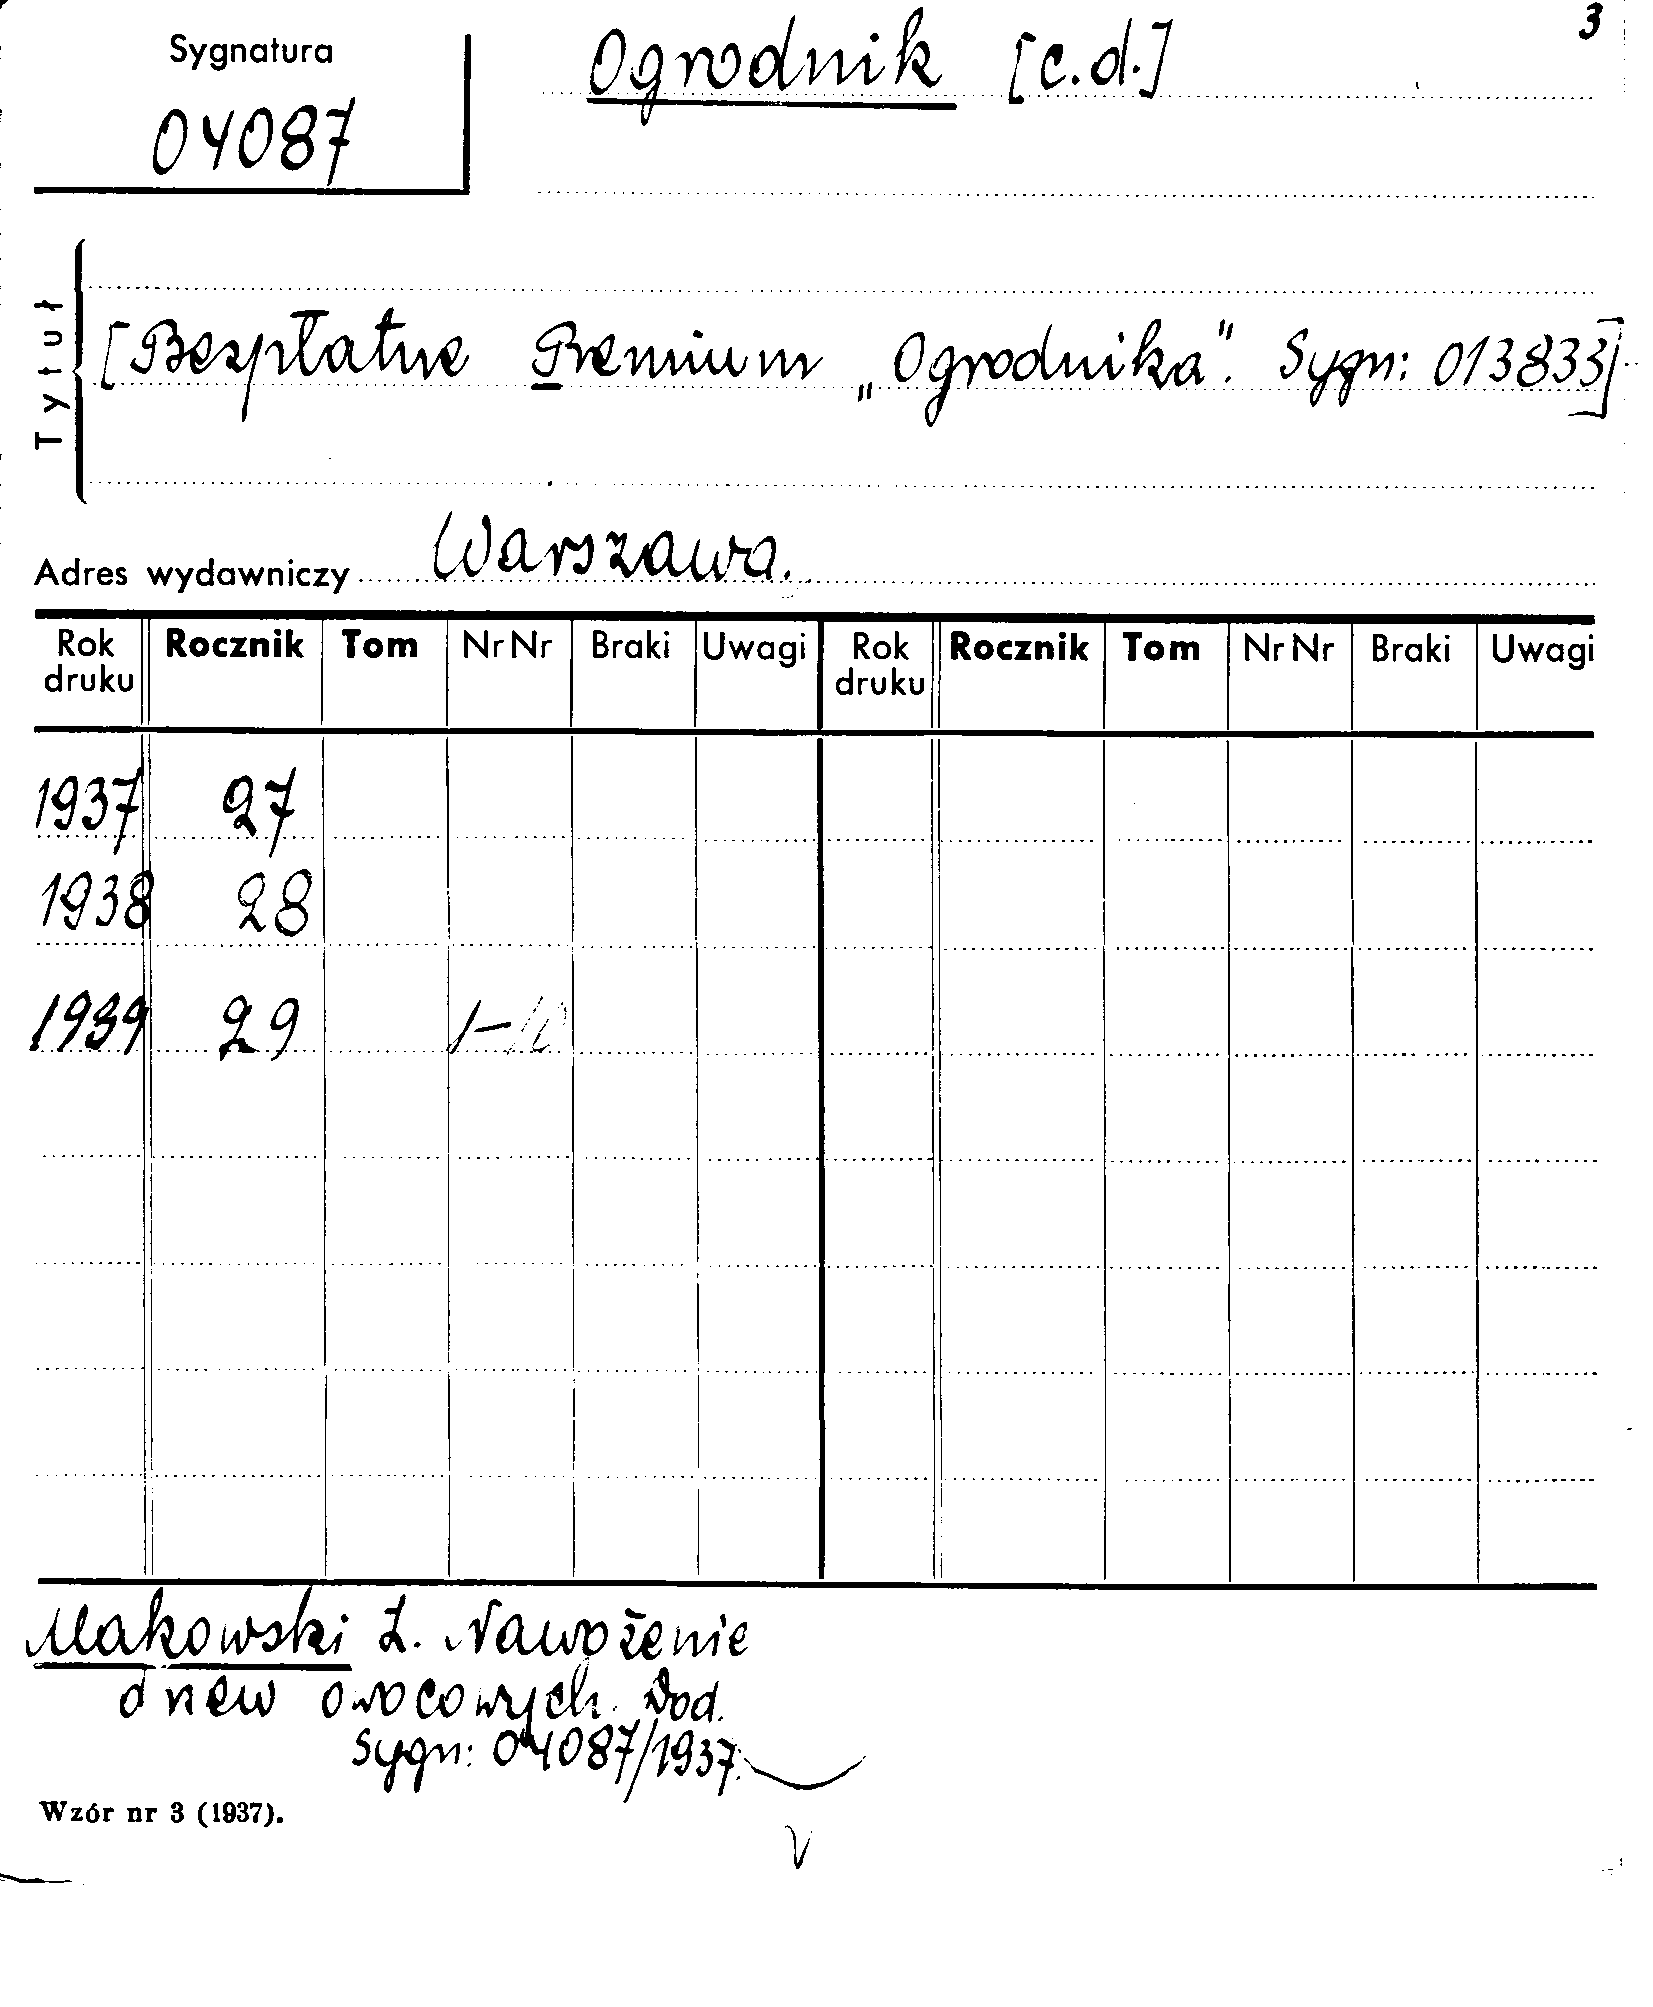 3
Sygnatura
04087
Ogrodnik [c.d.]
Tytuł
[Bezpłatne Premium „Ogrodnika". Sygn: 013833]
Adres wydawniczy Warszawa.
Rok druku Rocznik Tom Nr Nr Braki Uwagi Rok druku Rocznik Tom Nr Nr Braki Uwagi
1937 27
1938 28
1939 29 1-
Makowski Z. Nawożenie
drzew owocowych. Dod.
Sygn: 04087/1937.
Wzór nr 3 (1937).